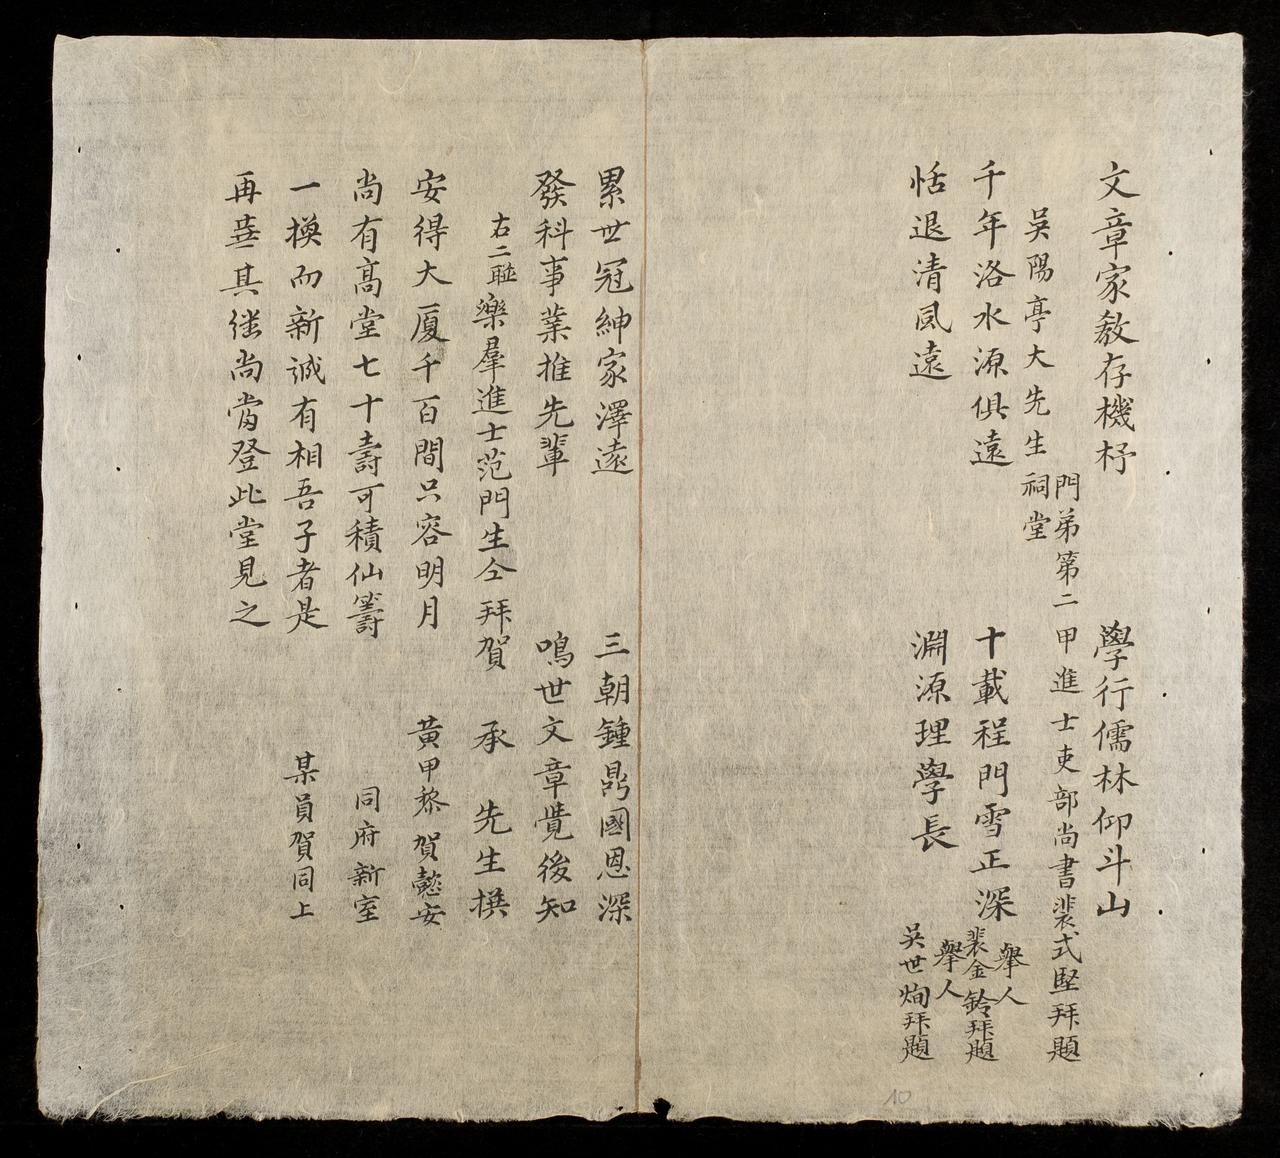 文章家敎存機杼　學行儒林仰斗山
吳陽亭大先生祠堂
門弟第二甲進士吏部尚書裴式堅拜題
千年洛水源俱遠　十載程門雪正深
舉人裴金鈴拜題
恬退清風遠　淵源理學長
舉人吳世炯拜題
累世冠紳家澤遠　三朝鍾鼎國恩深
發科事業推先輩　鳴世文章覺後知
右二聮樂羣進士范門生仝拜賀　承　先生撰
安得大厦千百間只容明月　黃甲黎賀懿安
尚有高堂七十壽可積仙籌　同府新室
一換而新誠有相吾子者是　某員賀同上
再 其継尚當登此堂見之
10